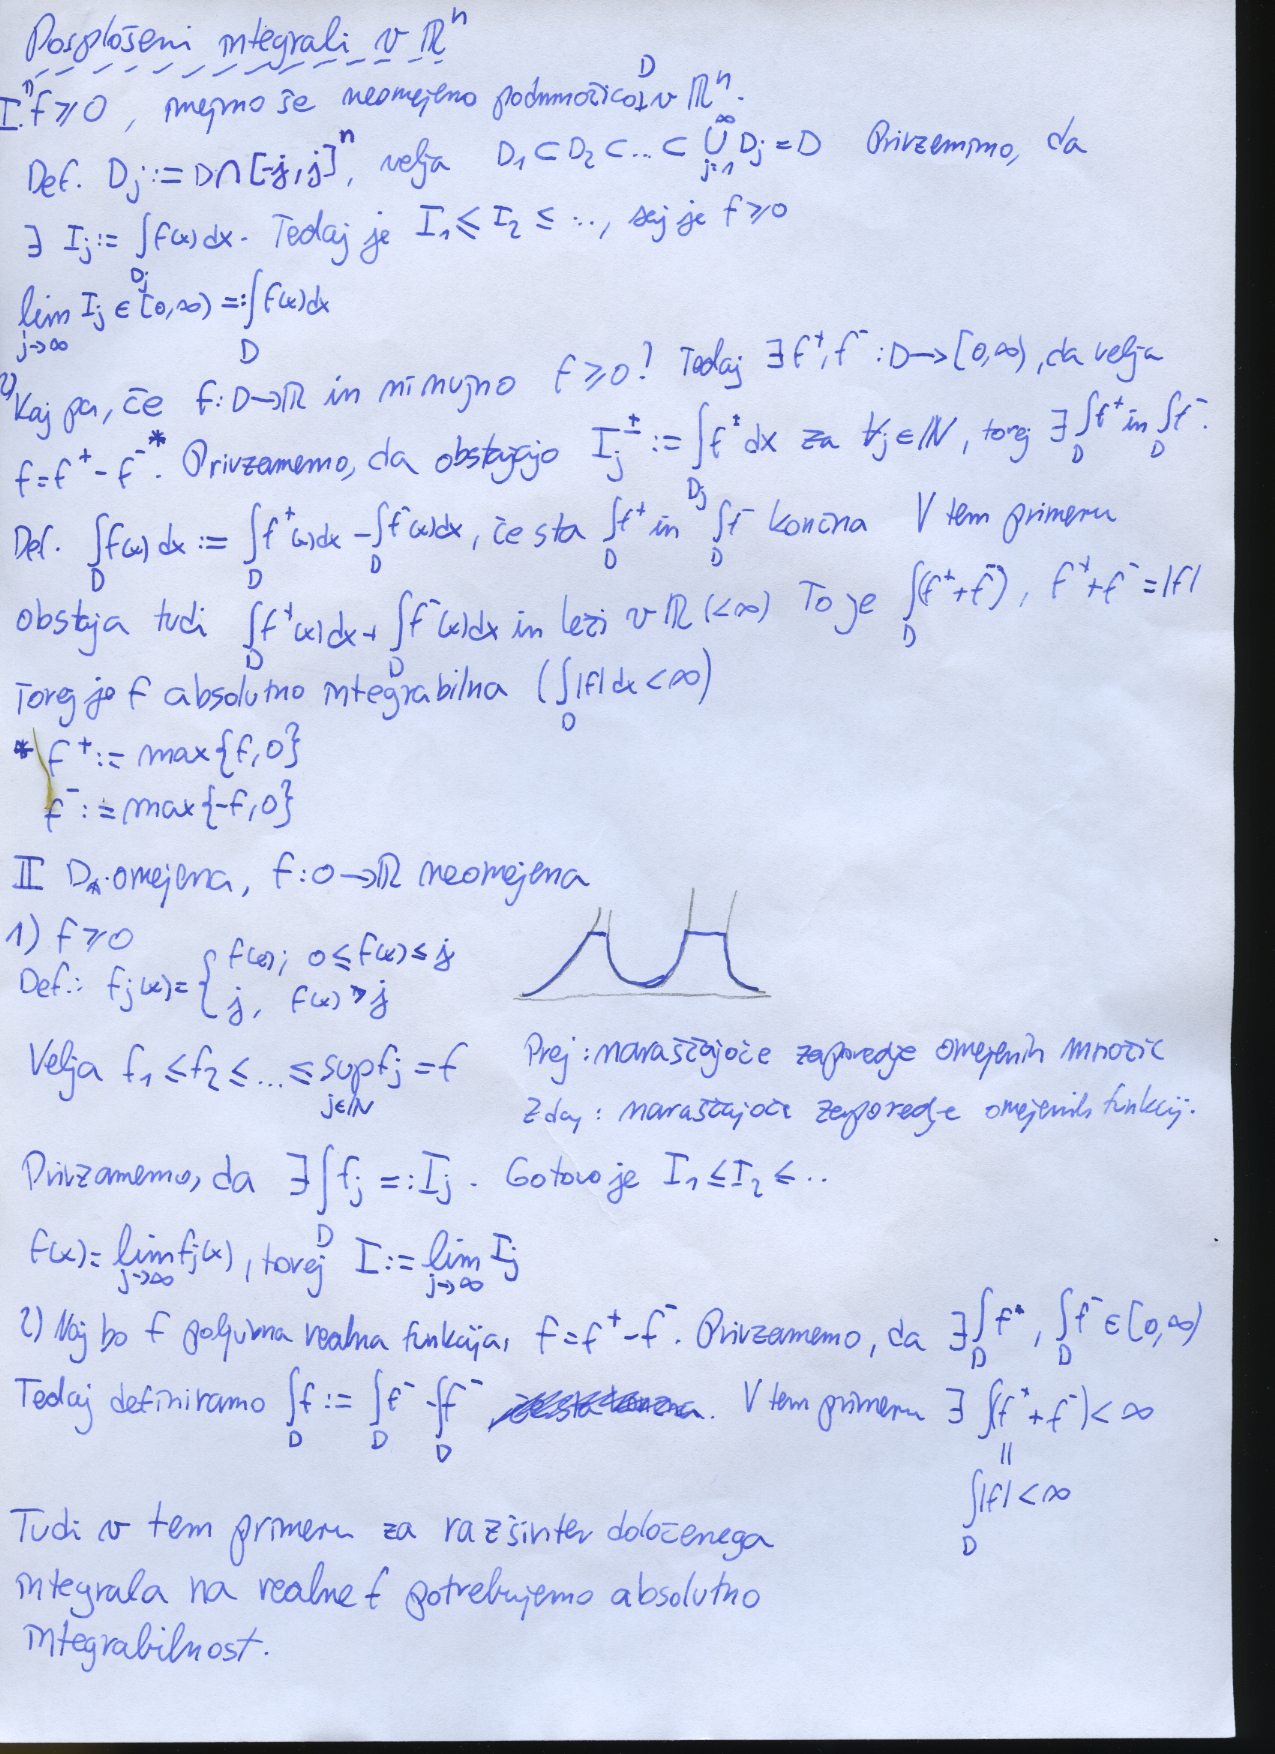 Posplošeni integrali v ℝⁿ
I. 1) f ≥ 0, imejmo še neomejeno podmnožico D v ℝⁿ.
Def. D_j := D∩[-j,j]ⁿ, velja D₁⊂D₂⊂...⊂ ⋃_{j=1}^∞ D_j = D Privzemimo, da
∃ I_j := ∫_{D_j} f(x)dx. Tedaj je I₁ ≤ I₂ ≤ ..., saj je f ≥ 0
lim_{j→∞} I_j ∈ [0,∞) =: ∫_D f(x)dx
2) Kaj pa, če f: D→ℝ in ni nujno f ≥ 0? Tedaj ∃ f⁺, f⁻: D→[0,∞), da velja
f = f⁺ - f⁻*. Privzamemo, da obstajajo I_j^± := ∫_{D_j} f^± dx za ∀j∈ℕ, torej ∃ ∫_D f⁺ in ∫_D f⁻.
Def. ∫_D f(x)dx := ∫_D f⁺(x)dx - ∫_D f⁻(x)dx, če sta ∫_D f⁺ in ∫_D f⁻ končna V tem primeru
obstaja tudi ∫_D f⁺(x)dx + ∫_D f⁻(x)dx in leži v ℝ (<∞) To je ∫_D (f⁺+f⁻), f⁺+f⁻ = |f|
Torej je f absolutno integrabilna (∫_D |f| dx < ∞)
* f⁺ := max{f,0}
f⁻ := max{-f,0}
II D omejena, f: D→ℝ neomejena
1) f ≥ 0
Def.: f_j(x) = { f(x); 0 ≤ f(x) ≤ j
j, f(x) > j
Velja f₁ ≤ f₂ ≤ ... ≤ sup_{j∈ℕ} f_j = f
Prej: naraščajoče zaporedje omejenih množic
Zdaj: naraščajoče zaporedje omejenih funkcij.
Privzamemo, da ∃ ∫_D f_j =: I_j. Gotovo je I₁ ≤ I₂ ≤ ..
f(x) = lim_{j→∞} f_j(x), torej I := lim_{j→∞} I_j
2) Naj bo f poljubna realna funkcija, f = f⁺ - f⁻. Privzamemo, da ∃ ∫_D f⁺, ∫_D f⁻ ∈ [0,∞)
Tedaj definiramo ∫_D f := ∫_D f⁻ - ∫_D f⁻. V tem primeru ∃ ∫(f⁺+f⁻) < ∞
||
∫_D |f| < ∞
Tudi v tem primeru za razširitev določenega
integrala na realne f potrebujemo absolutno
integrabilnost.